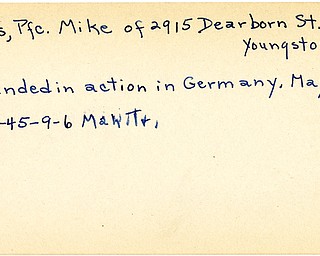 s, Pfc. Mike of 2915 Dearborn St.
Youngsto
nded in action in Germany. Ma
-45-9-6 Mahtt,